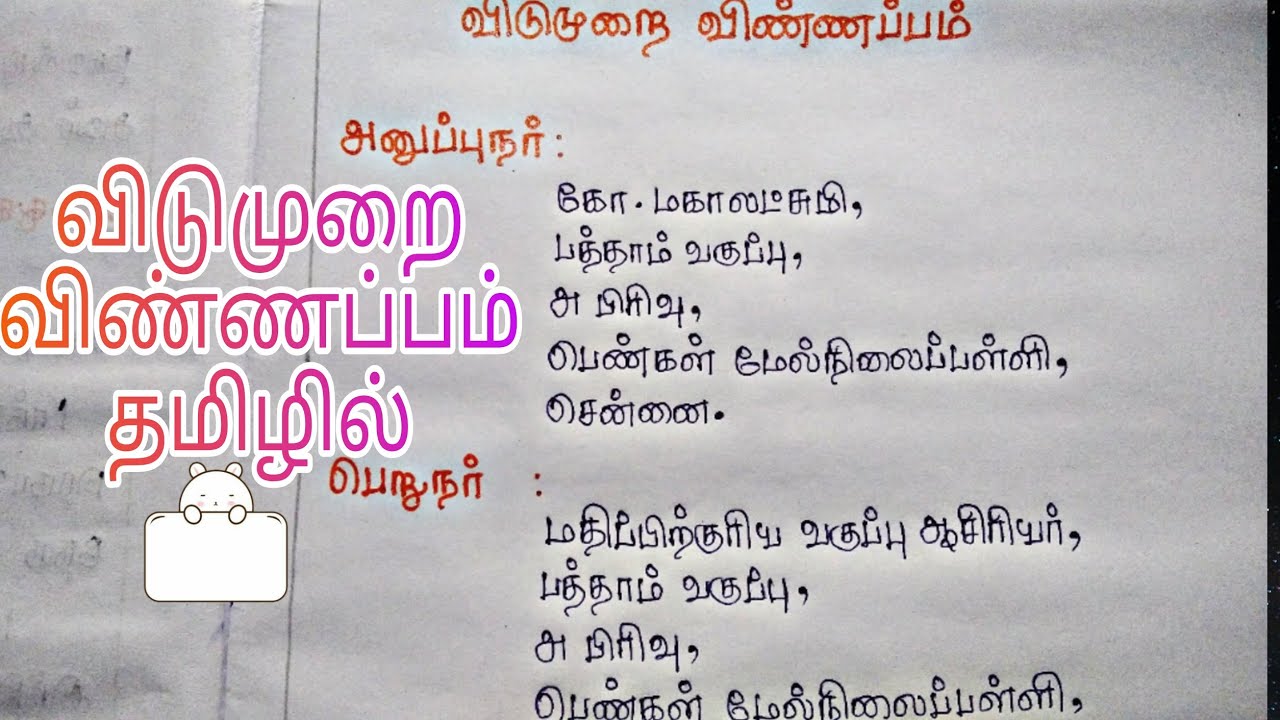 விடுமுறை விண்ணப்பம்
அனுப்புநர் :
கோ. மகாலட்சுமி,
பத்தாம் வகுப்பு,
அ பிரிவு,
பெண்கள் மேல்நிலைப்பள்ளி,
சென்னை.
விடுமுறை
விண்ணப்பம்
தமிழில்
பெறுநர் :
மதிப்பிற்குரிய வகுப்பு ஆசிரியர்,
பத்தாம் வகுப்பு,
அ பிரிவு,
பெண்கள் மேல்நிலைப்பள்ளி,